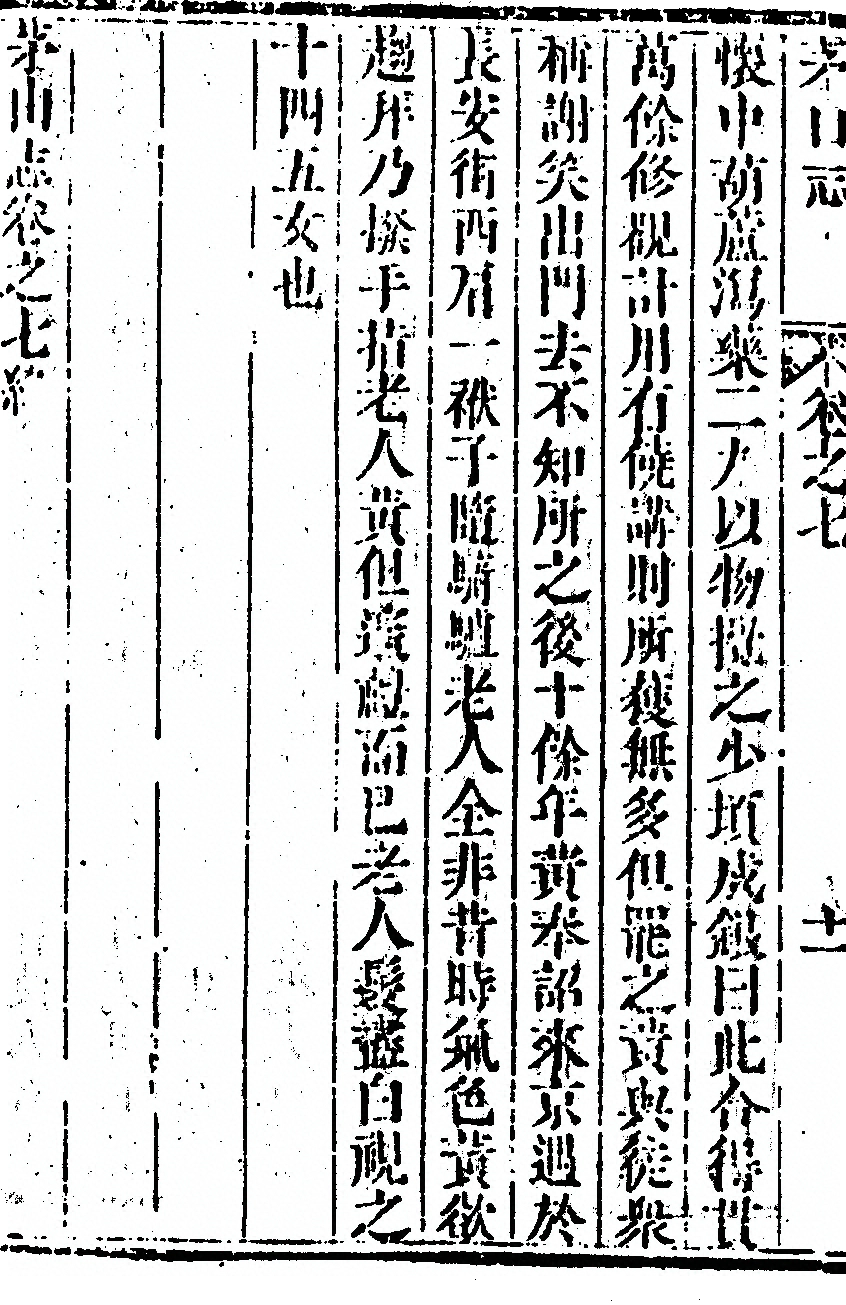 茅山志 卷之七 十一
懷中葫蘆瀉藥二丸以物攪之少頃成銀曰此合得廿
萬餘修觀計用有饒講則所獲無多但罷之黃與徒衆
稱謝矣出門去不知所之後十餘年黃奉詔來京過於
長安街西眉一袱子隨騎驢老人全非昔時氣色黃欲
趨拜乃揆手指老人黃但遙敬而已老人髮盡白視之
十四五女也
茅山志卷之七終